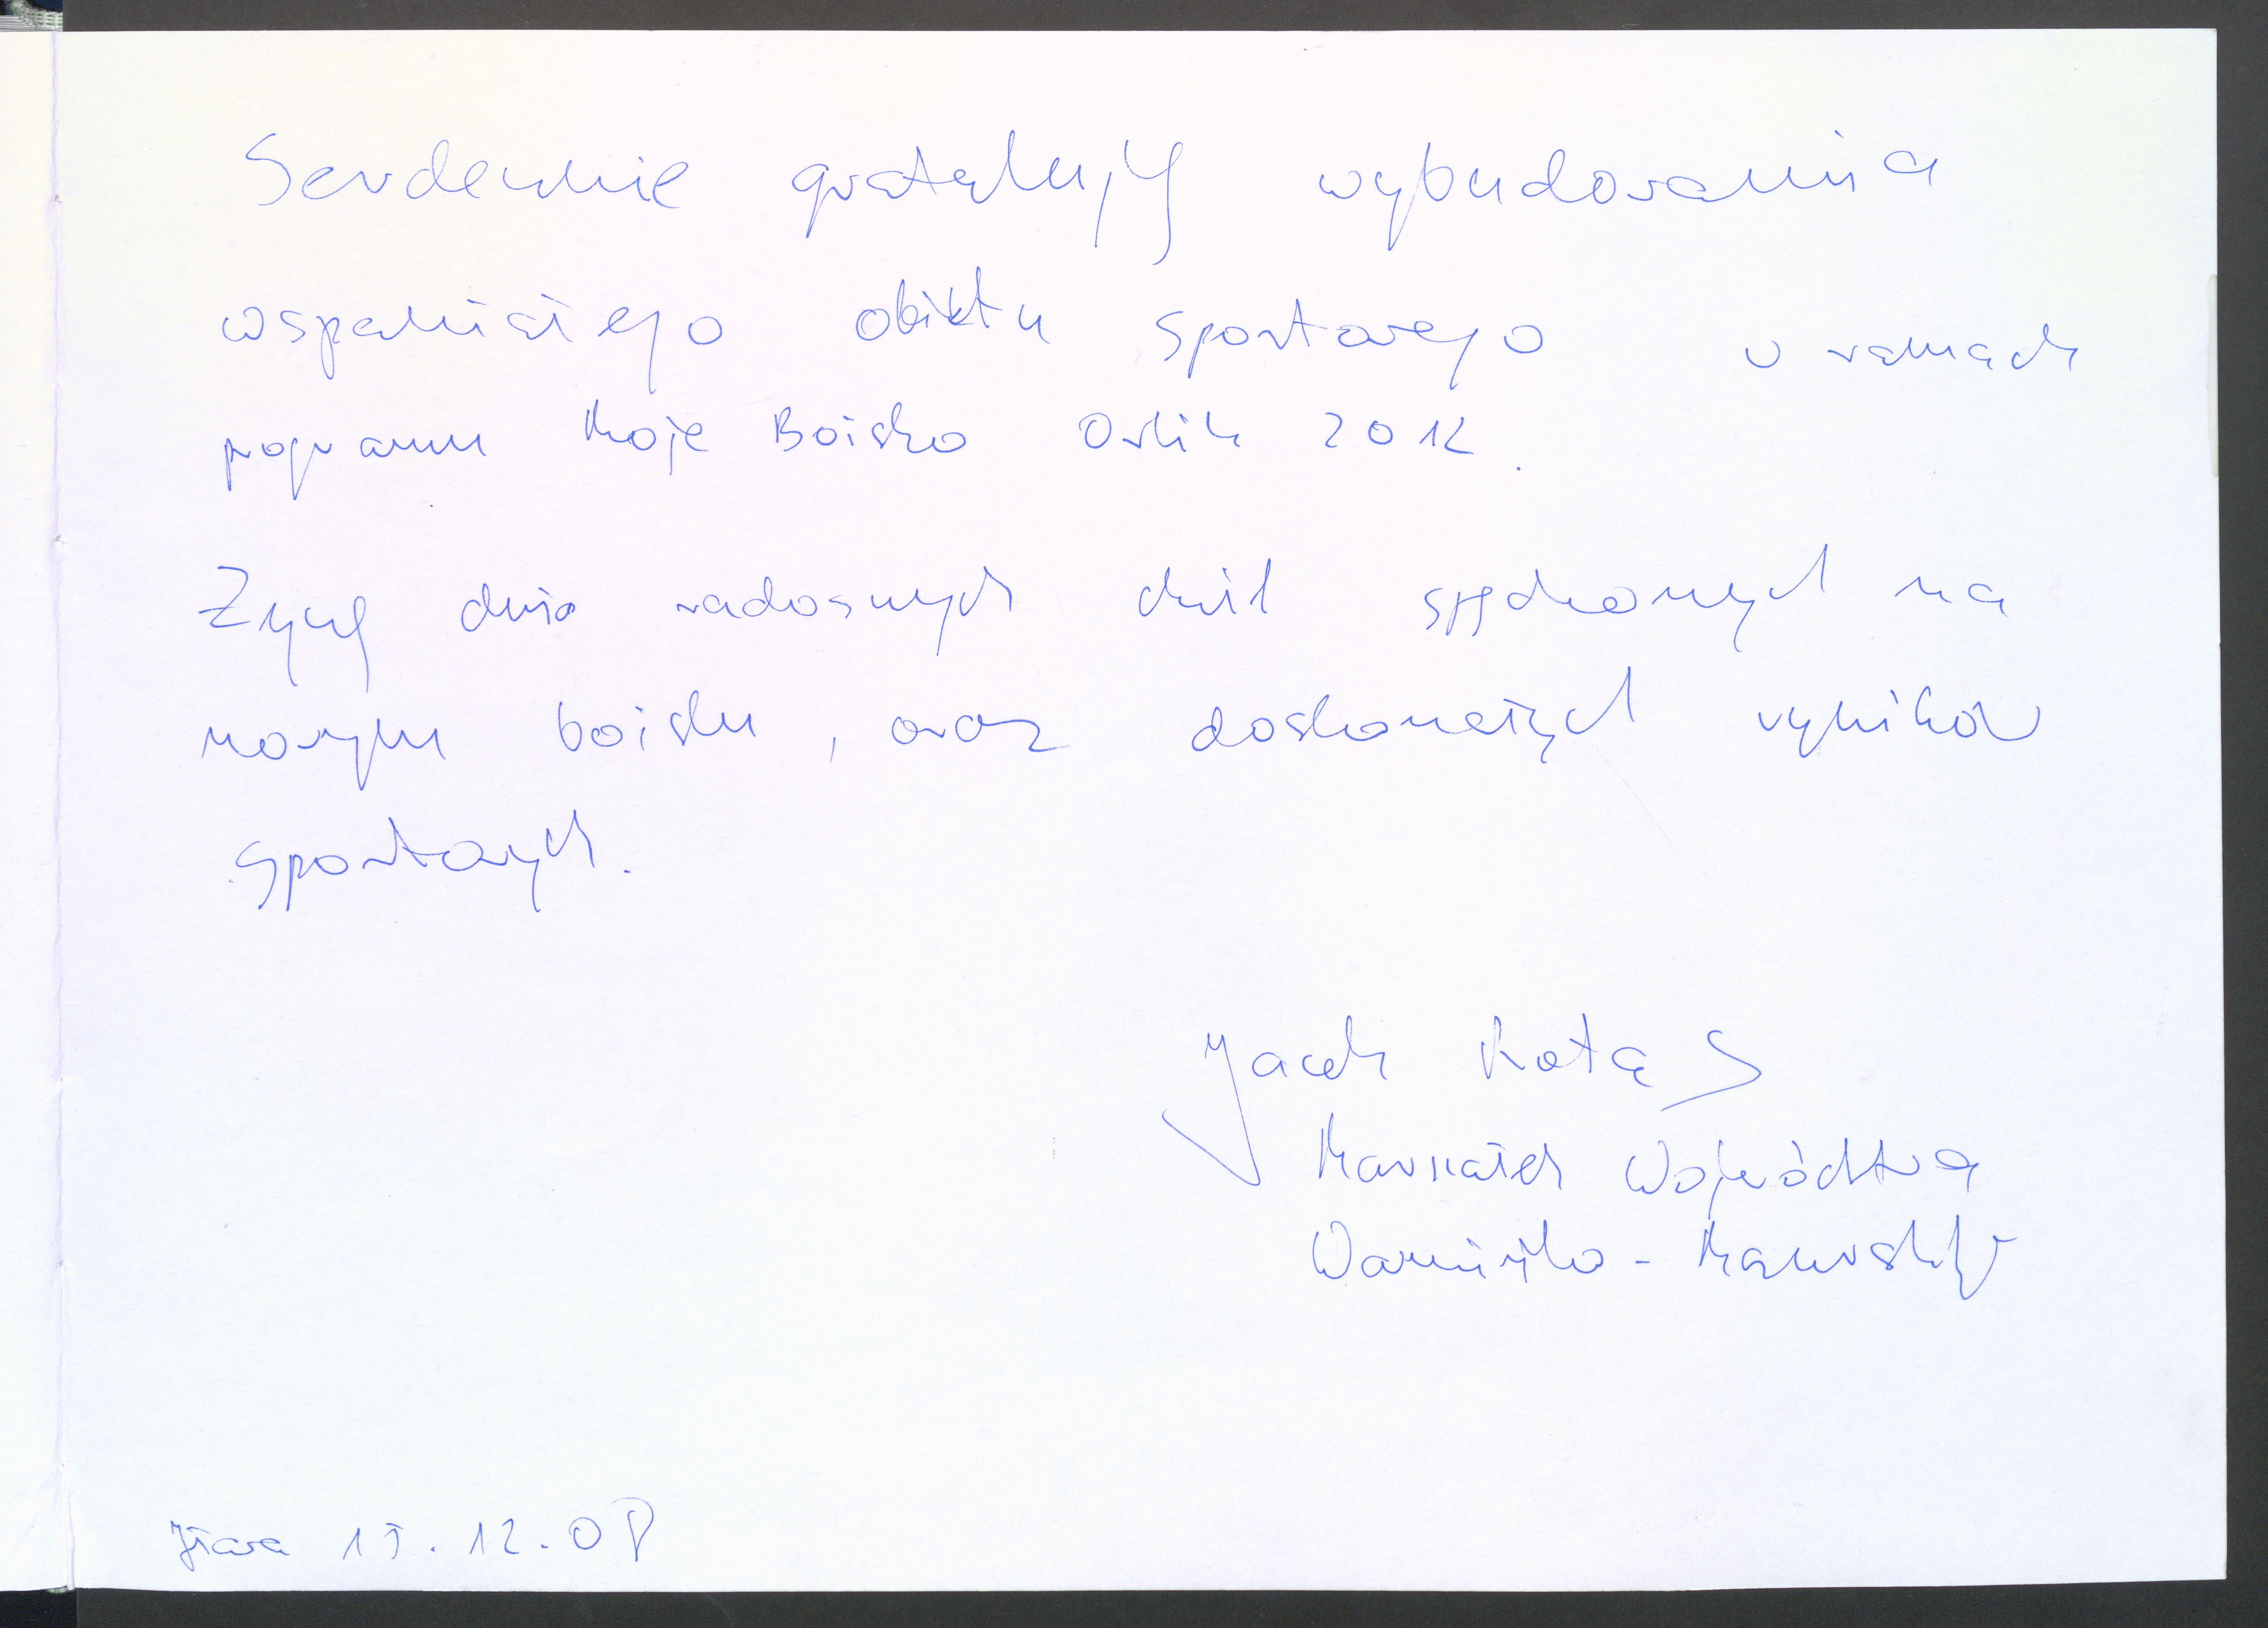 Serdecznie gratuluję wybudowania
wspaniałego obiektu sportowego w ramach
programu Moje Boisko Orlik 2012.
Życzę dużo radosnych chwil spędzonych na
nowym boisku, oraz doskonałych wyników
sportowych.
Jacek Protas
Marszałek Województwa
Warmińsko-Mazurskiego
Iława 15.12.08